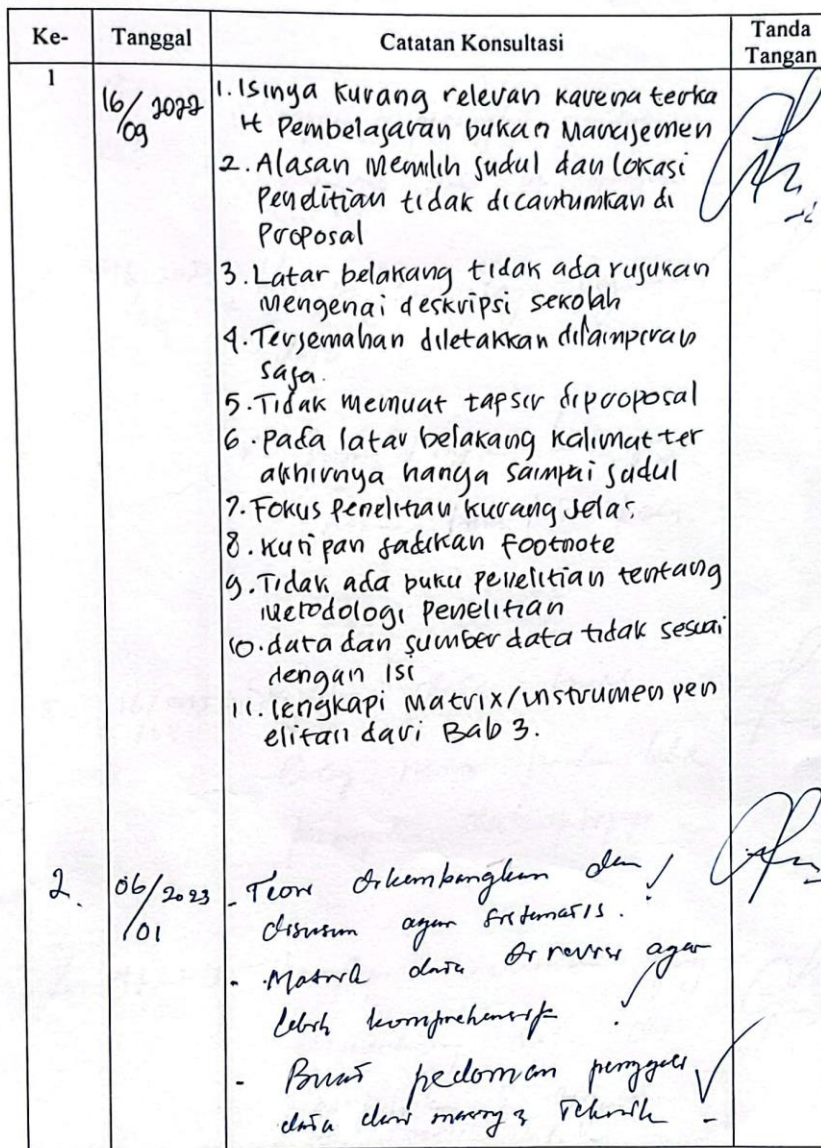 Ke-
Tanggal
Catatan Konsultasi
Tanda
Tangan
1
16/09 2022
1. Isinya kurang relevan karena terka
it Pembelajaran bukan Manajemen
2. Alasan Memilih judul dan lokasi
Penelitian tidak dicantumkan di
Proposal
3. Latar belakang tidak ada rujukan
Mengenai deskripsi sekolah
4. Terjemahan diletakkan dilampiran
saja.
5. Tidak memuat tapsir diproposal
6. Pada latar belakang kalimat ter
akhirnya hanya sampai judul
7. Fokus Penelitian kurang Jelas.
8. Kuti pan jadikan Footnote
9. Tidak ada buku penelitian tentang
metodologi penelitian
10. data dan sumber data tidak sesuai
dengan isi
11. lengkapi Matrix/instrumen pen
elitan dari Bab 3.
2.
06/01 2023
- Teori dikembangkan dan
disusun agar sistematis.
- Matrik data di revisi agar
lebih komprehensif
- Buat pedoman penggali
data dari masing2 Teknik